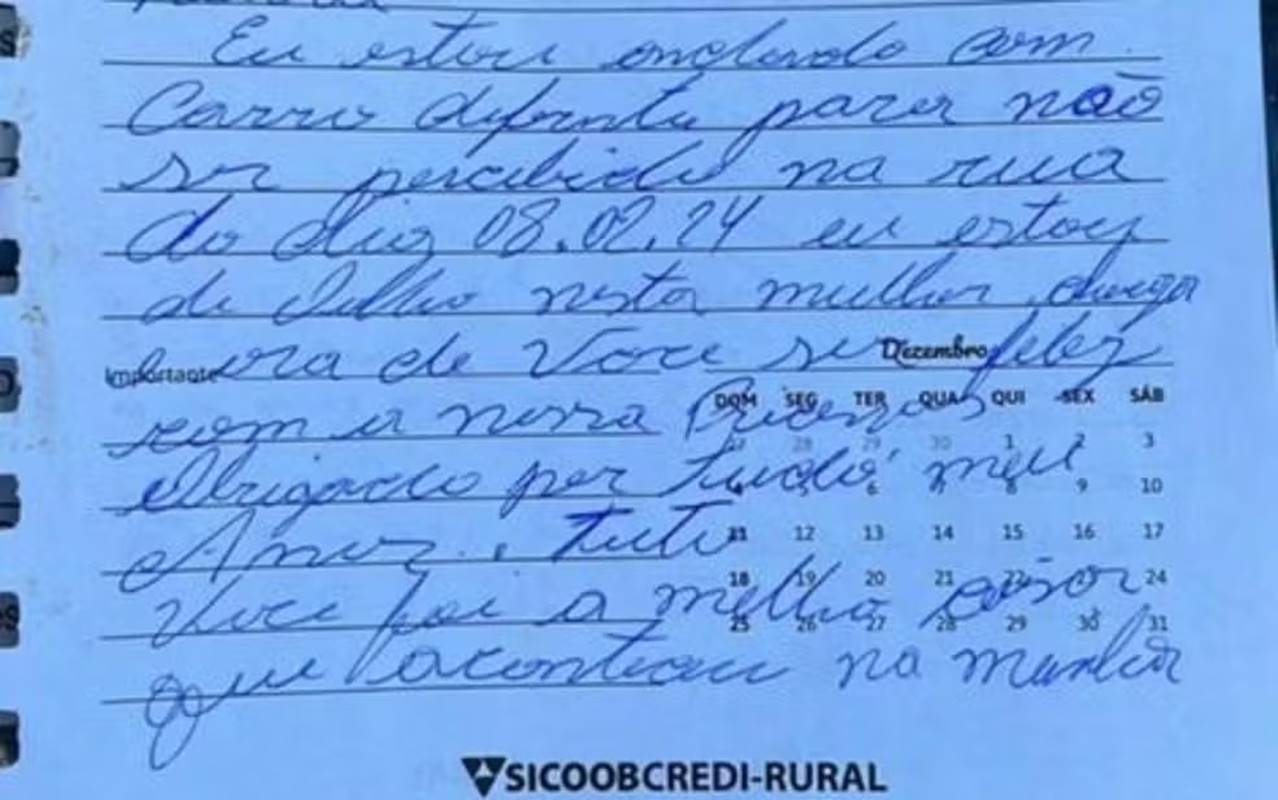 Eu estou andando com
Carro diferente para não
ser percebido na rua
do dia 08.02.24 eu estou
de olho nesta mulher chega
Importante
ora de Voce ser feliz
Dezembro
com a nossa Princesas
DOM SEG TER QUA QUI SEX SÁB
27 28 29 30 1 2 3
Obrigado por tudo meu
4 5 6 7 8 9 10
Amor. tuto
11 12 13 14 15 16 17
Voce foi a melhor coisa
18 19 20 21 22 23 24
25 26 27 28 29 30 31
que aconteceu na minha
SICOOBCREDI-RURAL